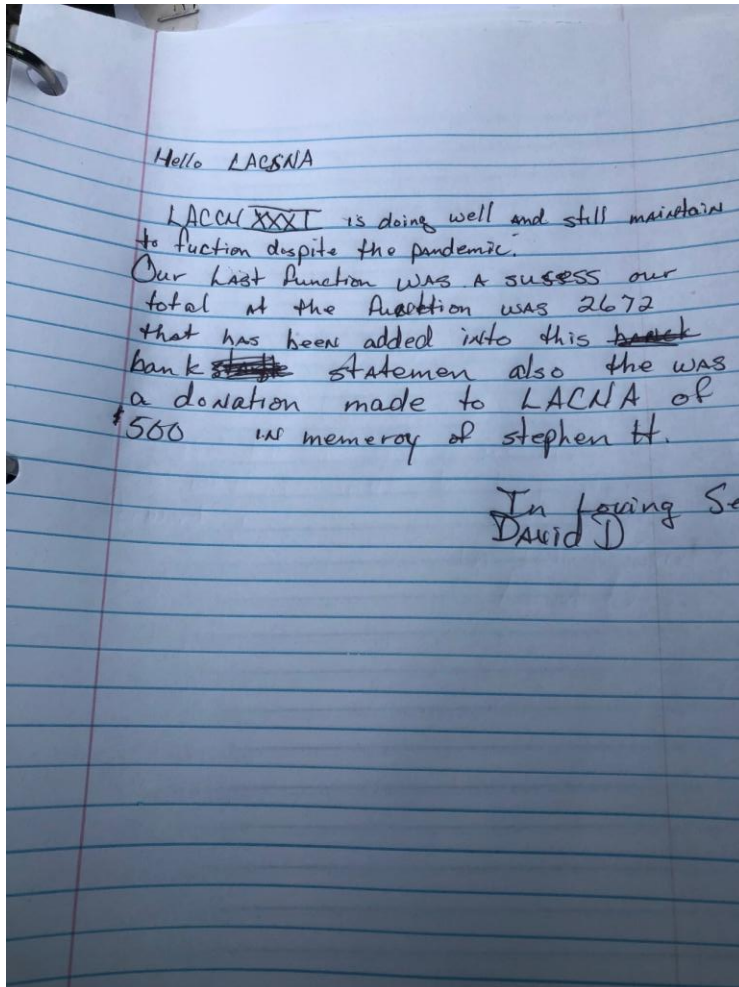 Hello LACSNA
LACCN XXXI is doing well and still maintain
to fuction despite the pandemic.
Our Last function was a sucess our
total at the was 2672
that has been added into this
bank statemen also the was
a donation made to LACNA of
$500 in memeroy of stephen H.
In Loving Se
David D